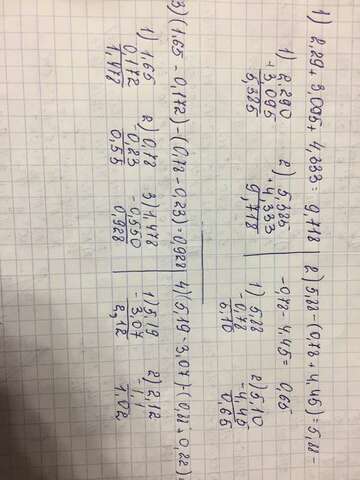 1) 2,29 + 3,095 + 4,333 = 9,718
1) 2,290
+ 3,095
5,385
2) 5,385
+ 4,333
9,718
2) 5,88 - (0,78 + 4,45) = 5,88 -
- 0,78 - 4,45 = 0,65
1) 5,88
- 0,78
5,10
2) 5,10
- 4,45
0,65
3) (1,65 - 0,172) - (0,78 - 0,23) = 0,928
1) 1,65
0,172
1,478
2) 0,78
0,23
0,55
3) 1,478
- 0,550
0,928
4) (5,19 - 3,07) - (0,88 + 0,22)
1) 5,19
- 3,07
2,12
2) 2,12
- 1,1
1,02